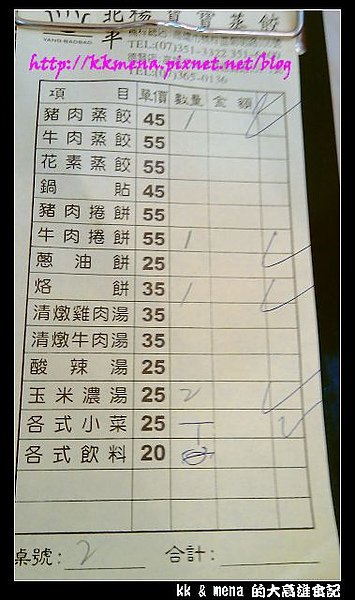 北楊寶寶蒸餃
YANG-BAOBAO
TEL:(07)351-3322
http://kkmena.pixnet.net/blog
TEL:(07)365-0136
項目 單價 數量 金額
豬肉蒸餃 45 1
牛肉蒸餃 55
花素蒸餃 55
鍋貼 45
豬肉捲餅 55
牛肉捲餅 55 1
蔥油餅 25
烙餅 35 1
清燉雞肉湯 35
清燉牛肉湯 35
酸辣湯 25
玉米濃湯 25 2
各式小菜 25
各式飲料 20
桌號: 2 合計:
kk & mena 的大高雄食記